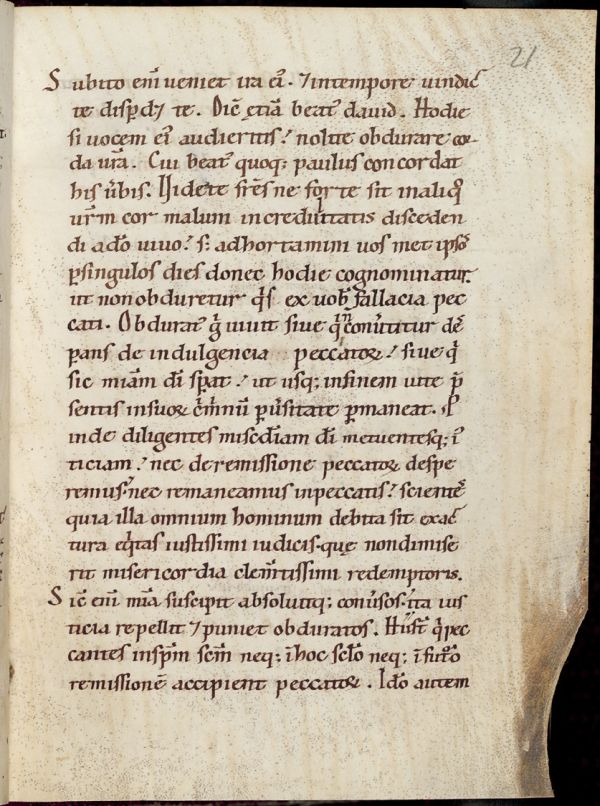 21
Subito eni᷒ ueniet ira ei᷒. ⁊intempore uindic̄
te disꝑd⁊ te. Dic̄ ętiā beat᷒ dauid. Hodie
si uocem ei᷒ audieritis / nolite obdurare cor
da ur̄a. Cui beat᷒ quoq; paulus concordat
his u̅bis. Uidete fr̅s ne forte sit inaliqͦ
ur̅m cor malum incredulitatis disceden
di adō uiuo / s; adhortamini uos met ipsos
ꝑsingulos dies donec hodie cognominatur
ut non obduretur q̇s ex uob̄ fallacia pec
cati. Obdurat᷒ g̊ uiuit siue q̇ n̄ conu̅titur de
ꝑans de indulgencia peccatoꝝ / siue q̇
sic miām dī sꝑat / ut usq; infinem uite p̄
sentis insuoꝝ c̄mīnū ꝑu̅sitate ꝑmaneat.
inde diligentes mis̄cdiam dī metuentesq; i᷒
ticiam / nec deremissione peccatoꝝ despe
remus nec remaneamus inpeccatis / scientes
quia illa omnium hominum debita sit exac
tura eq̇tas iustissimi iudicis. quę nondimise
rit misericordia clem̄tissimi redemptoris.
Sic̄ eni᷒ miā suscipit absoluitq; conu̅sos. ita ius
ticia repellit ⁊puniet obduratos. Hi st̄ q̇ pec
cantes insp̄m sc̄m neq; i̅hoc sc̄lo neq; i̅ fut̊o
remissionē accipient peccatoꝝ. Idō autem